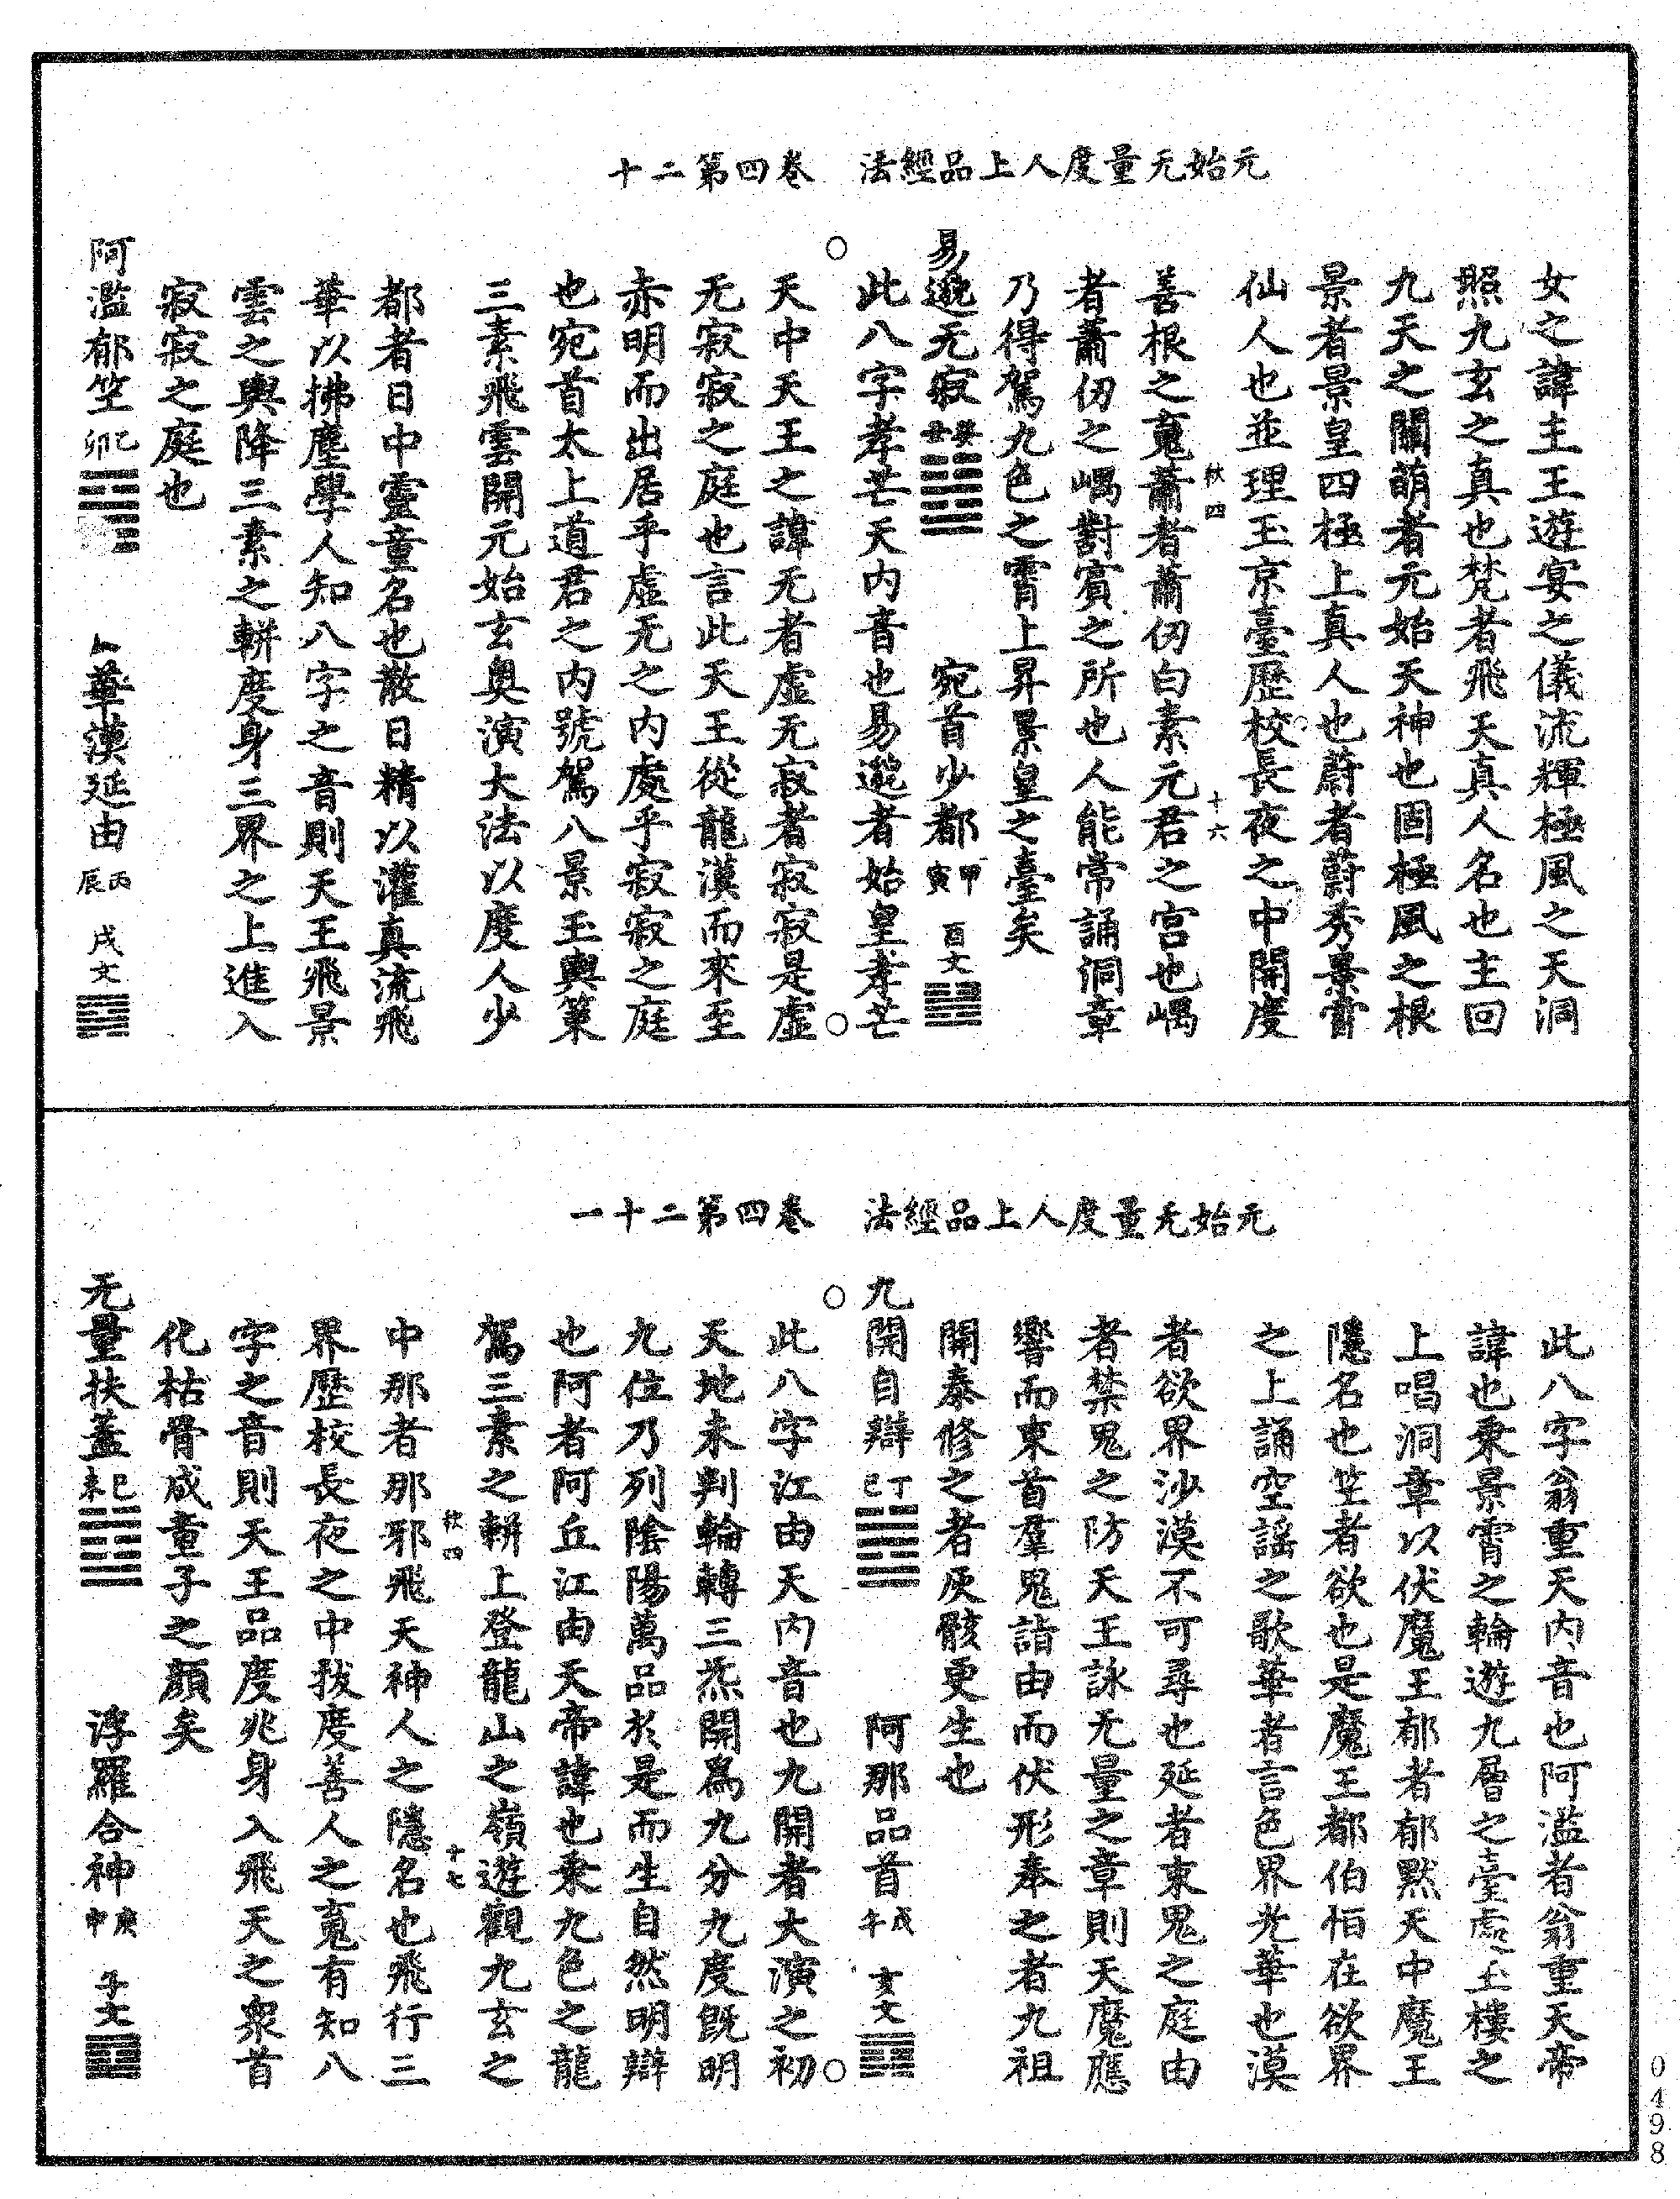 元始无量度人上品經法　卷四第二十
女之諱主王遊宴之儀流輝極風之天洞
照九玄之真也梵者飛天真人名也主回
九天之關萌者元始天神也固極風之根
景者景皇四極上真人也蔚者蔚秀景霄
仙人也並理玉京臺歷校長夜之中開度
秋四　十六
善根之䰟蕭者蕭仞白素元君之宮也嵎
者蕭仞之嵎對賓之所也人能常誦洞章
乃得駕九色之霄上昇景皇之臺矣
易邈无寂癸丑　宛首少都甲寅　酉文
此八字孝芒天内音也易邈者始皇孝芒
天中天王之諱无者虛无寂者寂寂是虛
无寂寂之庭也言此天王從龍漢而來至
赤明而出居乎虛无之内處乎寂寂之庭
也宛首太上道君之内號駕八景玉輿策
三素飛雲開元始玄奥演大法以度人少
都者日中靈童名也散日精以灌真流飛
華以拂塵學人知八字之音則天王飛景
雲之輿降三素之軿度身三界之上進入
寂寂之庭也
阿濫郁竺乙卯　華漠延由丙辰　戌文
元始无量度人上品經法　卷四第二十一
此八字翁重天内音也阿濫者翁重天帝
諱也乘景霄之輪遊九層之臺處玉樓之
上唱洞章以伏魔王郁者郁默天中魔王
隱名也竺者欲也是魔王都伯怕在欲界
之上誦空謠之歌華者言色界光華也漠
者欲界沙漠不可尋也延者東鬼之庭由
者禁鬼之防天王詠无量之章則天魔應
響而束首羣鬼詣由而伏形奉之者九祖
開泰修之者灰骸更生也
九開自辯丁巳　阿那品首戊午　亥文
此八字江由天内音也九開者大演之初
天地未判輪轉三炁開為九分九度既明
九位乃列陰陽萬品於是而生自然明辯
也阿者阿丘江由天帝諱也乘九色之龍
駕三素之軿上登龍山之嶺遊觀九玄之
秋四　十七
中那者那邪飛天神人之隱名也飛行三
界歷校長夜之中拔度善人之䰟有知八
字之音則天王品度兆身入飛天之衆首
化枯骨成童子之顔矣
无量扶蓋己未　浮羅合神庚申　子文
0498